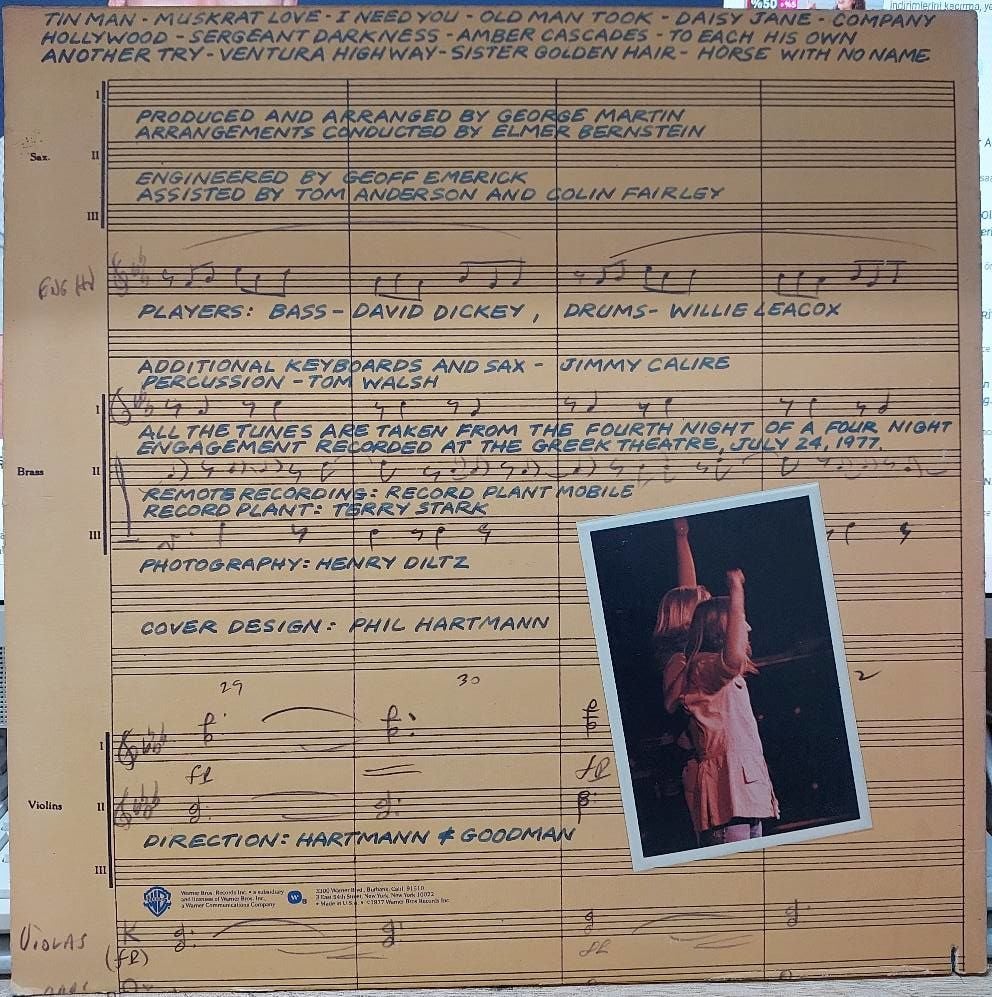 TIN MAN - MUSKRAT LOVE - I NEED YOU - OLD MAN TOOK - DAISY JANE - COMPANY
HOLLYWOOD - SERGEANT DARKNESS - AMBER CASCADES - TO EACH HIS OWN
ANOTHER TRY - VENTURA HIGHWAY - SISTER GOLDEN HAIR - HORSE WITH NO NAME
I
PRODUCED AND ARRANGED BY GEORGE MARTIN
ARRANGEMENTS CONDUCTED BY ELMER BERNSTEIN
Sax. II
ENGINEERED BY GEOFF EMERICK
ASSISTED BY TOM ANDERSON AND COLIN FAIRLEY
III
ENG HN
PLAYERS: BASS - DAVID DICKEY, DRUMS - WILLIE LEACOX
ADDITIONAL KEYBOARDS AND SAX - JIMMY CALIRE
PERCUSSION - TOM WALSH
I
ALL THE TUNES ARE TAKEN FROM THE FOURTH NIGHT OF A FOUR NIGHT
ENGAGEMENT RECORDED AT THE GREEK THEATRE, JULY 24, 1977.
Brass II
REMOTE RECORDING: RECORD PLANT MOBILE
RECORD PLANT: TERRY STARK
III
PHOTOGRAPHY: HENRY DILTZ
COVER DESIGN: PHIL HARTMANN
29 30 2
I
fp fp
Violins II
DIRECTION: HARTMANN & GOODMAN
III
Warner Bros. Records Inc. • a subsidiary
and licensee of Warner Bros. Inc.
a Warner Communications Company
3300 Warner Blvd., Burbank, Calif. 91510
3 East 54th Street, New York, New York 10022
• Made in U.S.A. • ©1977 Warner Bros Records Inc.
VIOLAS
(fp) fp
%50
indirimlerini kaçırma, ye